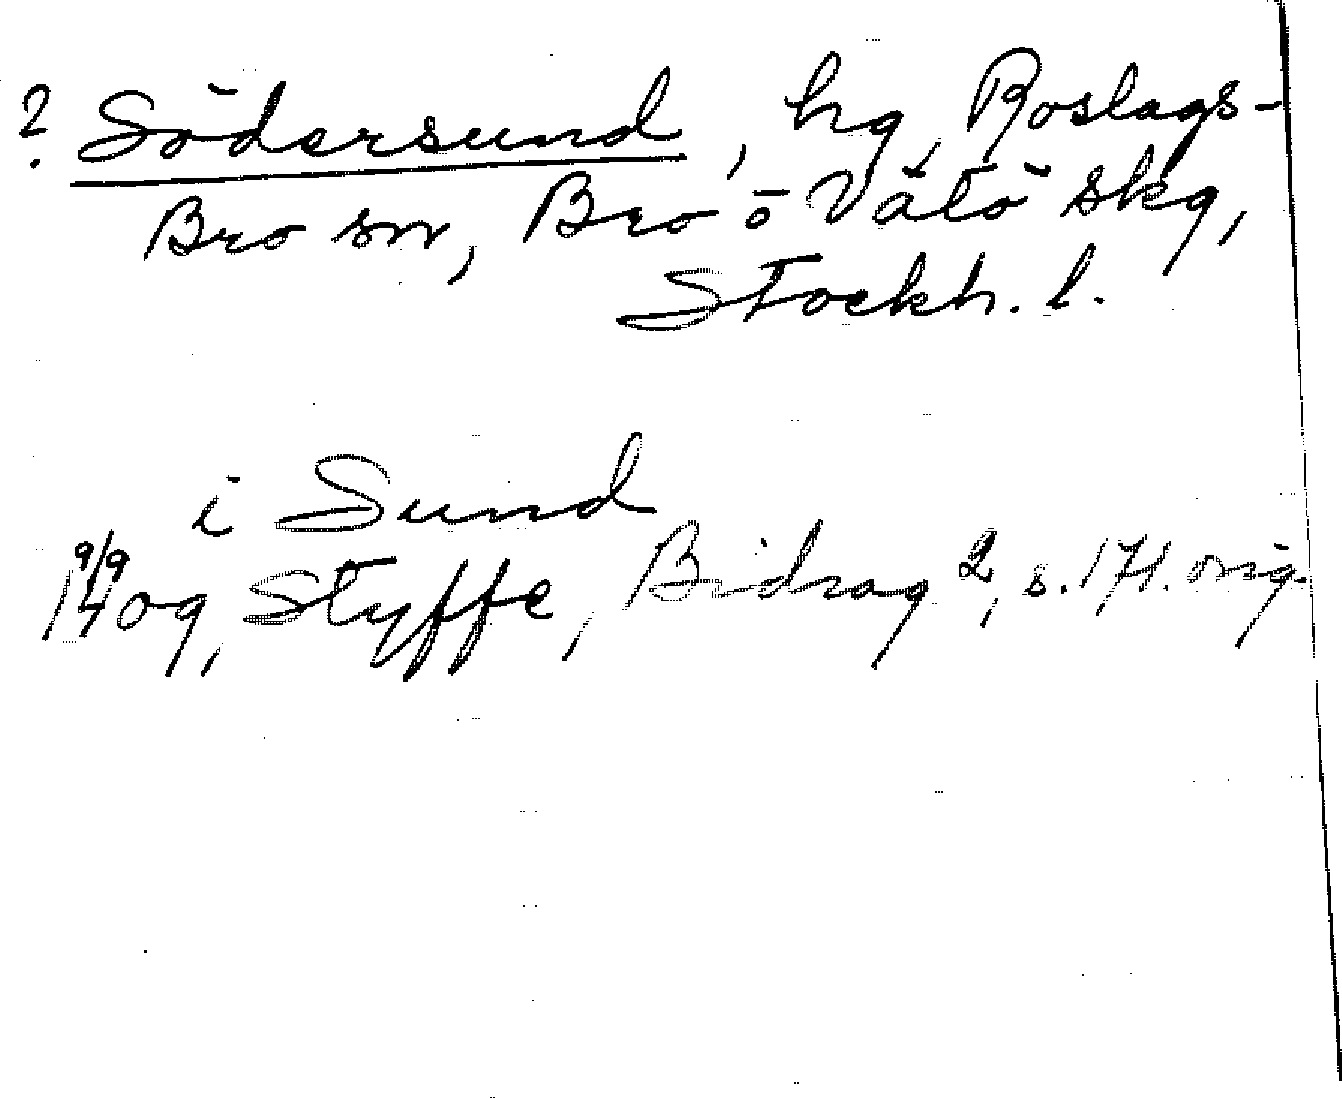 ? Södersund, hg, Roslags-
Bro sn, Bro ō Vätö skg,
Stockh. l.
i Sund
9/9 1409, Styffe, Bidrag 2, s. 171. orig.